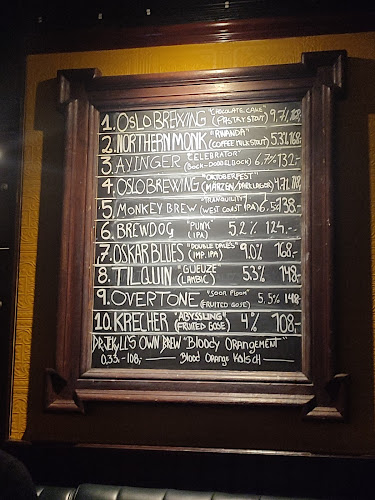 1. OSLO BREWING "CHOCOLATE CAKE" (PASTRY STOUT) 9,7%
2. NORTHERN MONK "RWANDA" (COFFEE MILK STOUT) 5.3% 168,-
3. AYINGER "CELEBRATOR" (BOCK-DOPPELBOCK) 6.7% 132.-
4. OSLO BREWING "OKTOBERFEST" (MÄRZEN/DARK LAGER) 4.7%
5. MONKEY BREW "TRANQUILITY" (WEST COAST IPA) 6.5% 138,-
6. BREWDOG "PUNK" (IPA) 5.2% 124.-
7. OSKAR BLUES "DOUBLE DALE'S" (IMP. IPA) 9.0% 168,-
8. TILQUIN "GUEUZE" (LAMBIC) 5.3% 148,-
9. OVERTONE (FRUITED GOSE) 5,5% 148,-
10. KRECHER "ABYSSLING" (FRUITED GOSE) 4% 108,-
DR. JEKYLL'S OWN BREW "Bloody ORANGEMENT"
0,33.-108,- Blood Orange Kölsch